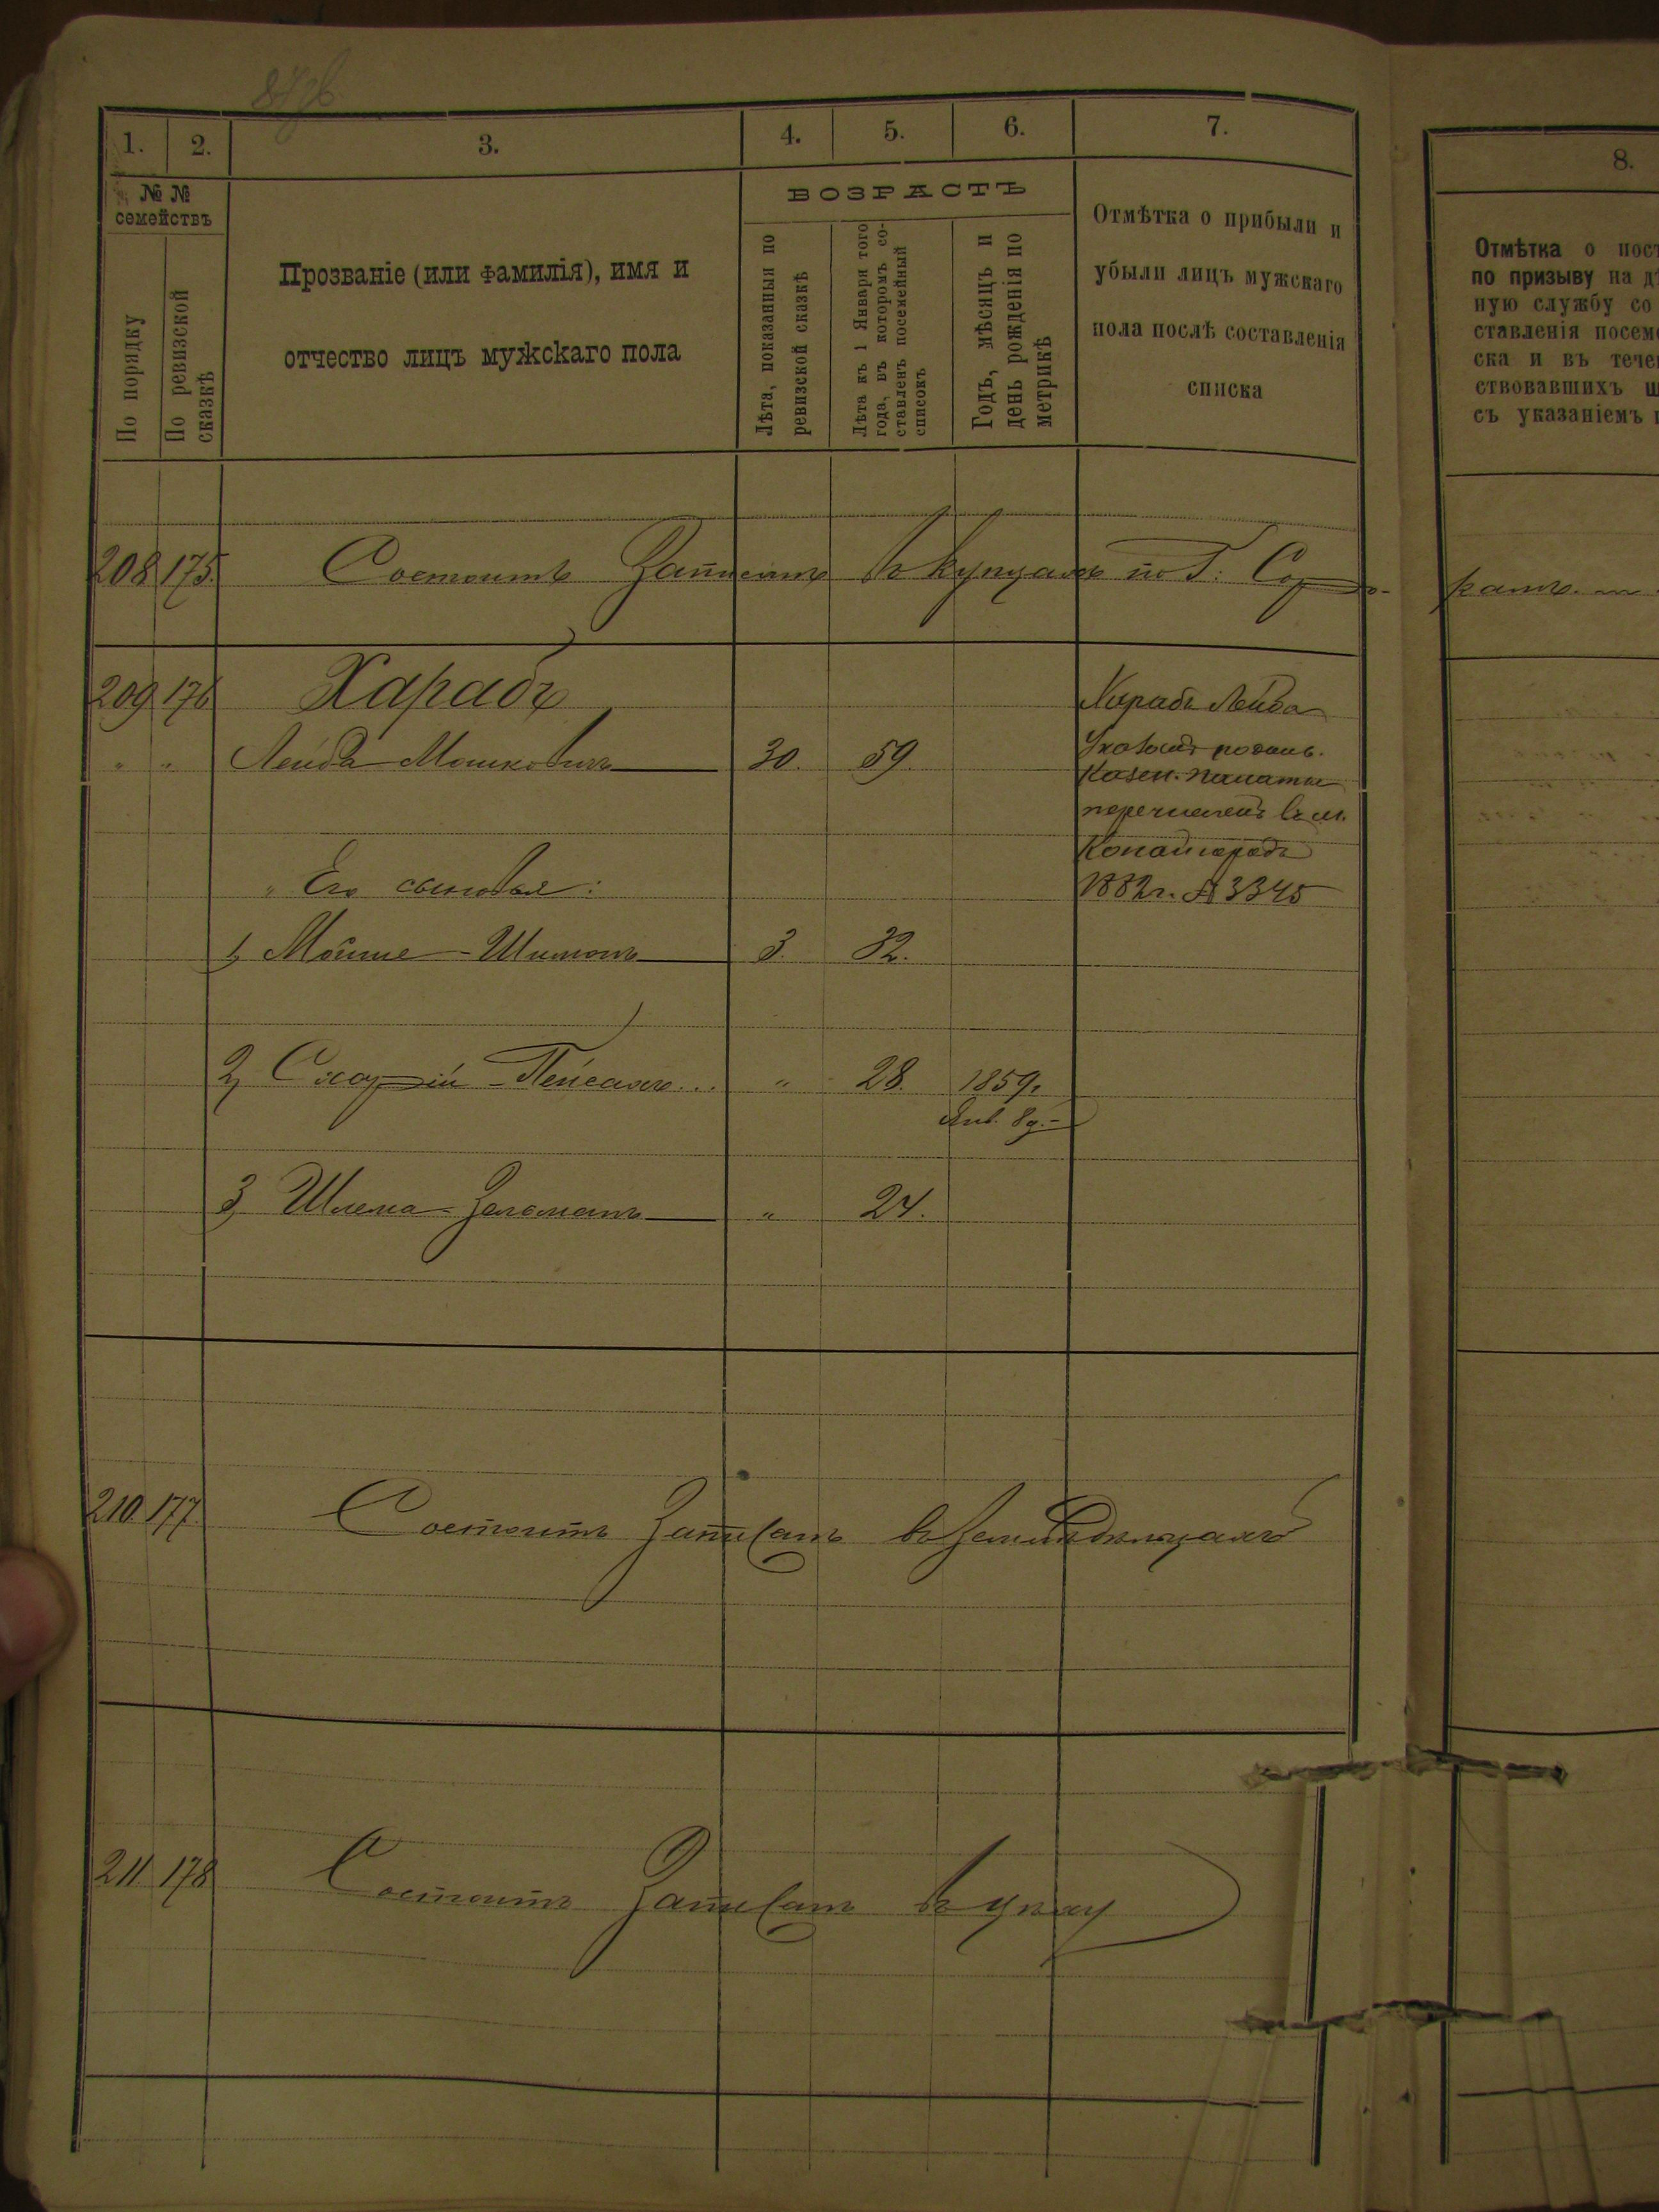 1. 2. 3. 4. 5. 6. 7. 8.
№ № семействъ
По порядку
По ревизской сказкѣ
Прозваніе (или фамилія), имя и
отчество лицъ мужскаго пола
ВОЗРАСТЪ
Лѣта, показанныя по
ревизской сказкѣ
Лѣта къ 1 Января того
года, въ которомъ со-
ставленъ посемейный
списокъ
Годъ, мѣсяцъ и
день рожденія по
метрикѣ
Отмѣтка о прибыли и
убыли лицъ мужскаго
пола послѣ составленія
списка
Отмѣтка о пост
по призыву на дѣ
ную службу со
ставленія посеме
ска и въ тече
ствовавшихъ
съ указаніемъ
208 175. Состоитъ Записанъ въ купцахъ по Г.
209 176 Харабъ
" " Лейба Мошковичъ 30. 59.
Харабъ Лейба
Казен. палаты
перечисленъ въ м.
Копайгородъ
1882 г. № 3345
" Его сыновья:
1, Мойше-Шимонъ 3. 32.
2, Пейсахъ... " 28. 1859.
Янв. 8 д.
3, Шлема-Залманъ " 24.
210. 177. Состоитъ Записанъ въ Земледѣльцахъ
211 178 Состоитъ Записанъ въ